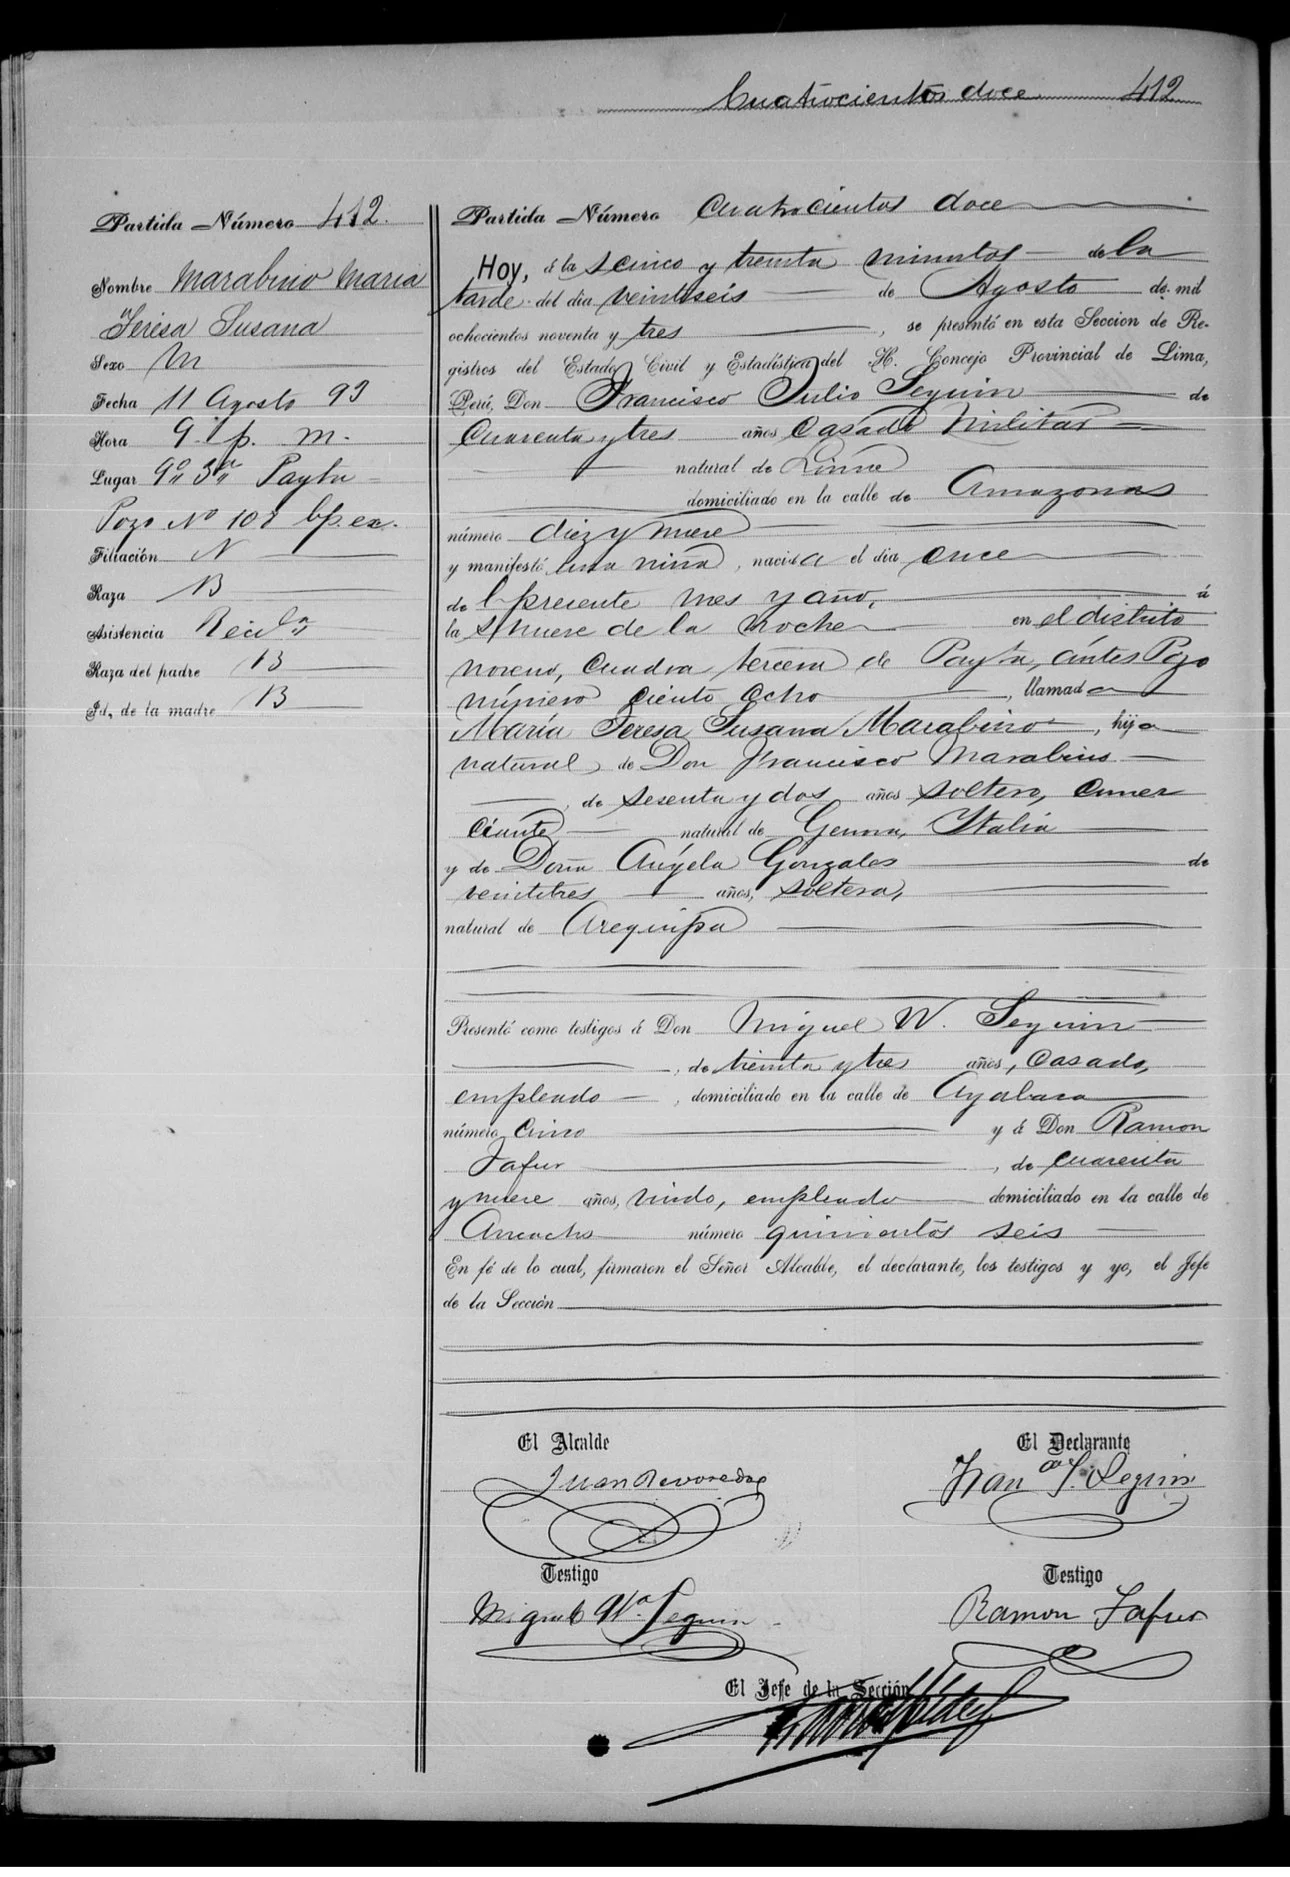 Cuatrocientos doce 412
Partida Número 412.
Nombre Marabino Maria
Teresa Susana
Sexo M
Fecha 11 Agosto 93
Hora 9. p. m.
Lugar 3a Payta
Pozo No 108
Filiación N
Raza B
Asistencia
Raza del padre B
Id. de la madre B
Partida Número Cuatrocientos doce
Hoy, á las cinco y treinta minutos de la
tarde del dia veintiseis de Agosto de mil
ochocientos noventa y tres, se presentó en esta Seccion de Re-
gistros del Estado Civil y Estadística del H. Concejo Provincial de Lima,
Perú, Don Francisco Julio Seguin de
Cuarenta y tres años Casado Militar
natural de Lima
domiciliado en la calle de Amazonas
número diez y nueve
y manifestó una niña, nacida el dia once
del presente mes y año, á
las nueve de la noche en el distrito
noveno, cuadra tercera de Payta, ántes Pozo
número ciento ocho, llamada
María Teresa Susana Marabino, hija
natural de Don Francisco Marabino
, de sesenta y dos años soltero, comer
ciante natural de Genova, Italia
y de Doña Angela Gonzales de
veintitres años, soltera,
natural de Arequipa
Presentó como testigos á Don Miguel W. Seguin
, de treinta y tres años, casado,
empleado, domiciliado en la calle de Ayabaca
número Cinco y á Don Ramon
Tafur, de cuarenta
y nueve años, viudo, empleado domiciliado en la calle de
Ancachs número quinientos seis
En fé de lo cual, firmaron el Señor Alcalde, el declarante, los testigos y yo, el Jefe
de la Sección
El Alcalde El Declarante
Juan Revoredo Franco J. Seguin
Testigo Testigo
Miguel Wo. Seguin Ramon Tafur
El Jefe de la Sección